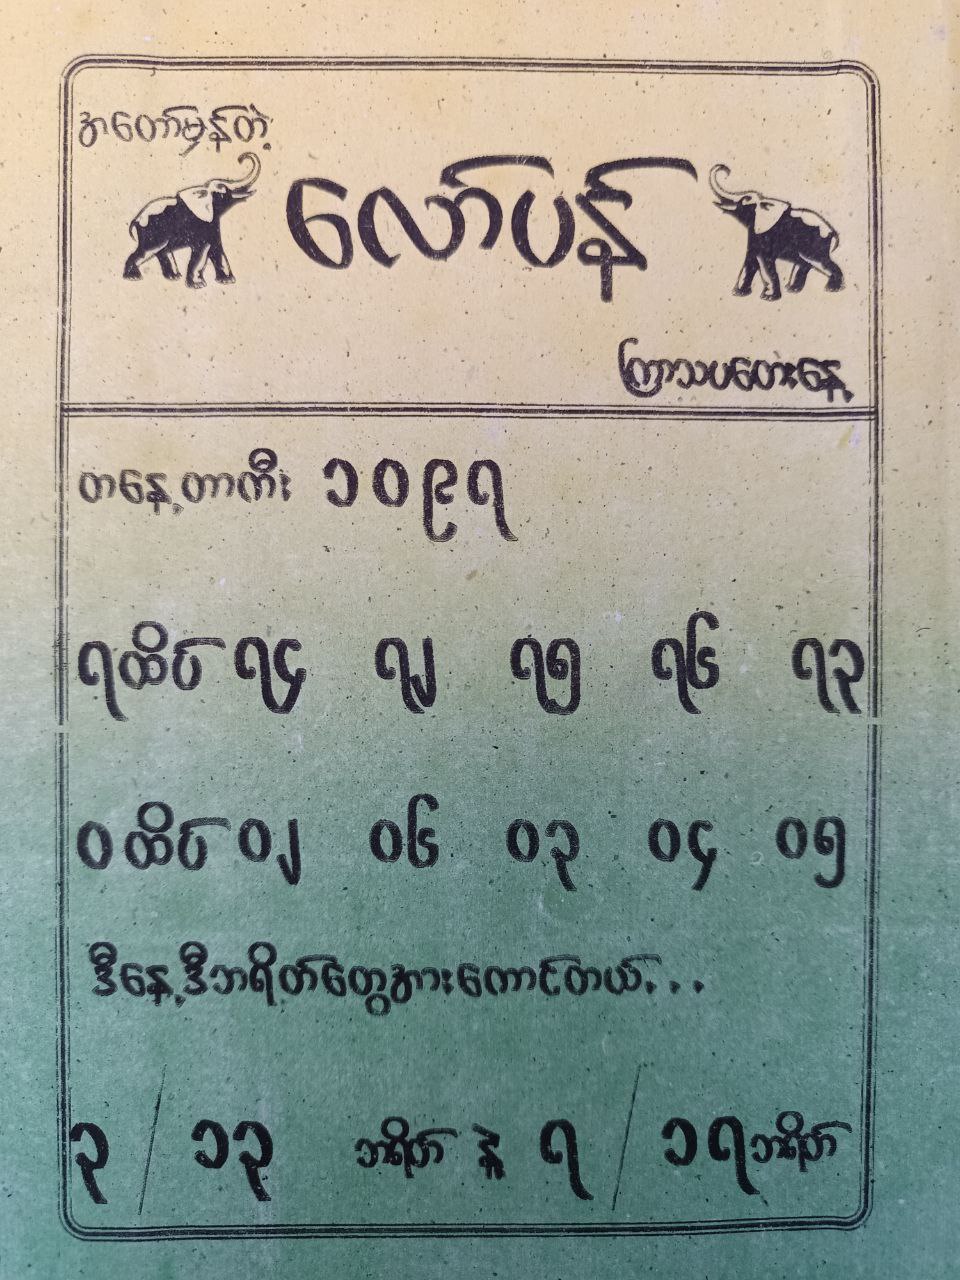 အတော်မှန်တဲ့
လော်ပန်
ကြာသပတေးနေ့
တနေ့တာကီး ၁၀၉၇
၇ထိပ် ၇၄ ၇၂ ၇၅ ၇၆ ၇၃
၀ထိပ် ၀၂ ၀၆ ၀၃ ၀၄ ၀၅
ဒီနေ့ဒီဘရိတ်တွေအားကောင်တယ်...
၃/၁၃ ဘရိတ် နဲ့ ၇/၁၇ဘရိတ်